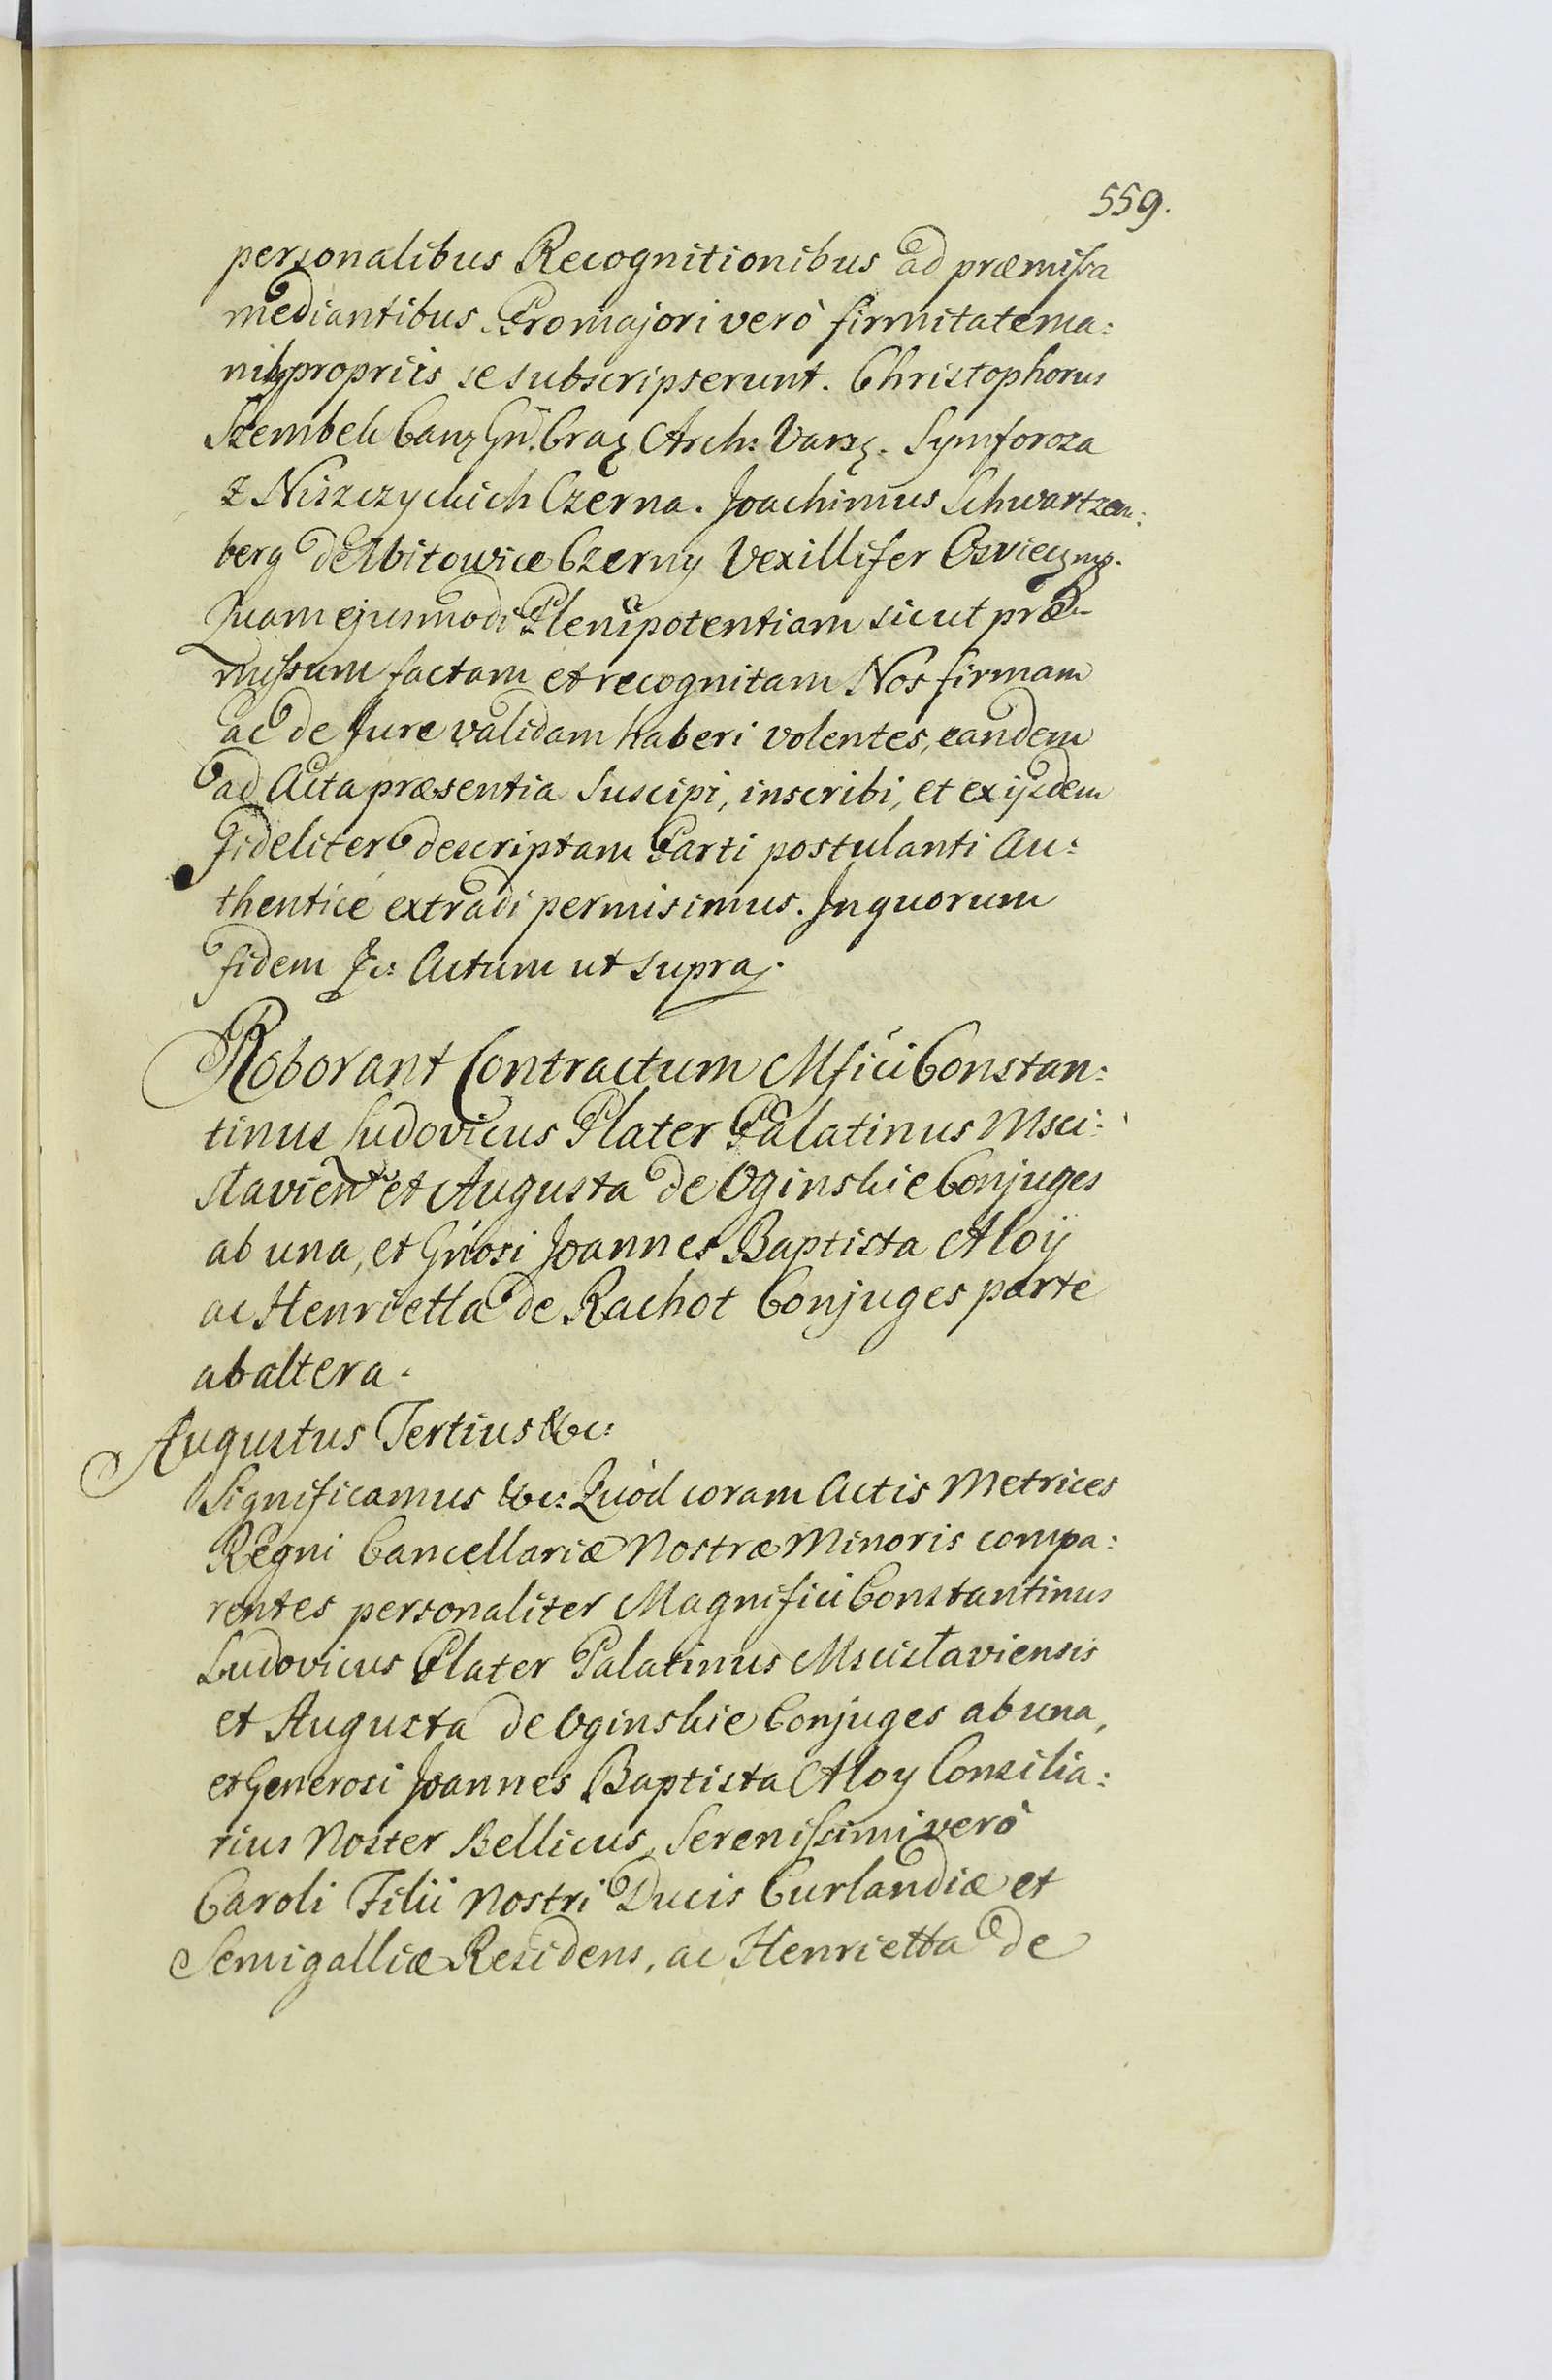 559.
personalibus Recognitionibus ad præmissa
mediantibus. Pro majori verò firmitate ma:
nibq propriis se subscripserunt. Christophorus
Szembek Can. Gn. Crac. Arch: Vars. Symforoza
z Niszczyckich Czerna. Joachimus Schwartzem:
berg de Witowice Czerny Vexillifer
Quam ejusmodi Plenipotentiam sicut præ
missum factam et recognitam Nos firmam
ac de Jure validam haberi volentes, eandem
ad Acta præsentia suscipi, inscribi, et ex ijsdem
Fideliter descriptam Parti postulanti Au:
thenticé extradi permisimus. In quorum
fidem &c: Actum ut supra.
Roborant Contractum Mfici Constan:
tinus Ludovicus Plater Palatinus Msci:
slavien et Augusta de Oginskie Conjuges
ab una, et Gnosi Joannes Baptista Aloÿ
ac Henrietta de Rachot Conjuges parte
ab altera.
Augustus Tertius &c:
Significamus &c: Quòd coram Actis Metrices
Regni Cancellariæ Nostræ Minoris compa:
rentes personaliter Magnifici Constantinus
Ludovicus Plater Palatinus Mscislaviensis
et Augusta de Oginskie Conjuges ab una,
et Generosi Joannes Baptista Aloy Consilia:
rius Noster Bellicus, Serenissimi verò
Caroli Filii Nostri Ducis Curlandiæ et
Semigalliæ Residens, ac Henrietta de